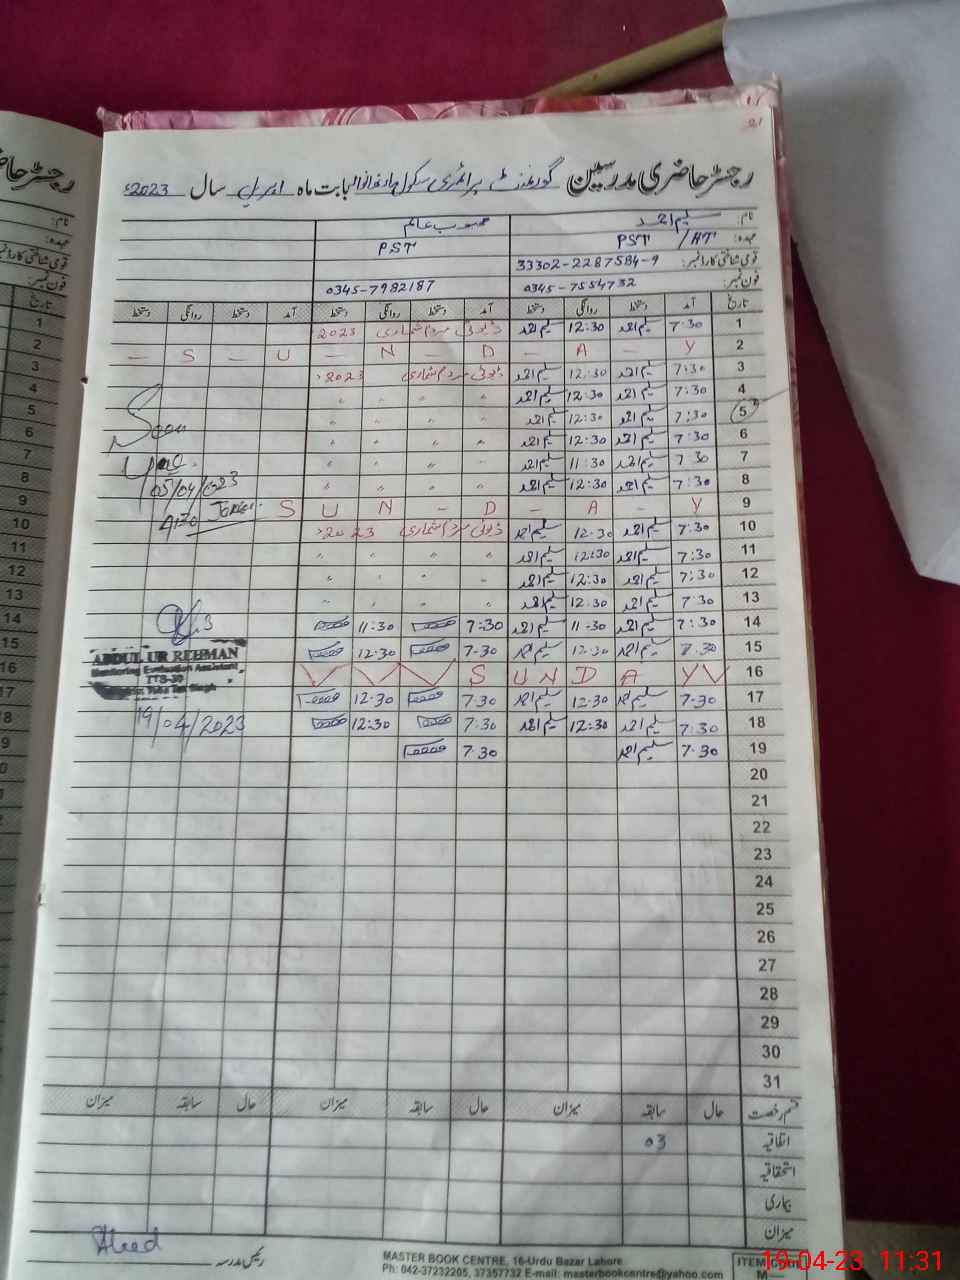 21
رجسٹر حاضری مدرسین گورنمنٹ پرائمری سکول بابت ماہ اپریل سال 2023ء
نام: سلیم احمد محبوب عالم
عہدہ: PST /HT PST
قومی شناختی کارڈ نمبر: 33302-2287584-9
فون نمبر: 0345-7554732 0345-7982187
تاریخ آمد دستخط روانگی دستخط آمد دستخط روانگی دستخط آمد دستخط روانگی دستخط
1 7:30 سلیم احمد 12:30 سلیم احمد ڈیوٹی مردم شماری 2023
2 S U N D A Y
3 7:30 سلیم احمد 12:30 سلیم احمد ڈیوٹی مردم شماری 2023
4 7:30 سلیم احمد 12:30 سلیم احمد " " " "
5 7:30 سلیم احمد 12:30 سلیم احمد " " " "
6 7:30 سلیم احمد 12:30 سلیم احمد " " " "
7 7:30 سلیم احمد 11:30 سلیم احمد " " " "
8 7:30 سلیم احمد 12:30 سلیم احمد " " " "
05/04/023
9 S U N D A Y
10 7:30 سلیم احمد 12:30 سلیم احمد ڈیوٹی مردم شماری 2023
11 7:30 سلیم احمد 12:30 سلیم احمد " " " "
12 7:30 سلیم احمد 12:30 سلیم احمد " " " "
13 7:30 سلیم احمد 12:30 سلیم احمد " " " "
14 7:30 سلیم احمد 11:30 سلیم احمد 7:30 11:30
15 7:30 سلیم احمد 12:30 سلیم احمد 7:30 12:30
ABDUL UR REHMAN
Monitoring Evaluation Assistant
TTS-30
District Toba Tek Singh
16 S U N D A Y
17 7:30 سلیم احمد 12:30 سلیم احمد 7:30 12:30
18 7:30 سلیم احمد 12:30 سلیم احمد 7:30 12:30
19/04/2023
19 7:30 سلیم احمد 7:30
20
21
22
23
24
25
26
27
28
29
30
31
قسم رخصت حال سابقہ میزان حال سابقہ میزان حال سابقہ میزان
اتفاقیہ 03
استحقاقیہ
بیماری
میزان
رئیس مدرسہ
MASTER BOOK CENTRE, 16-Urdu Bazar Lahore
Ph: 042-37232205, 37357732 E-mail: masterbookcentre@yahoo.com
19-04-23 11:31